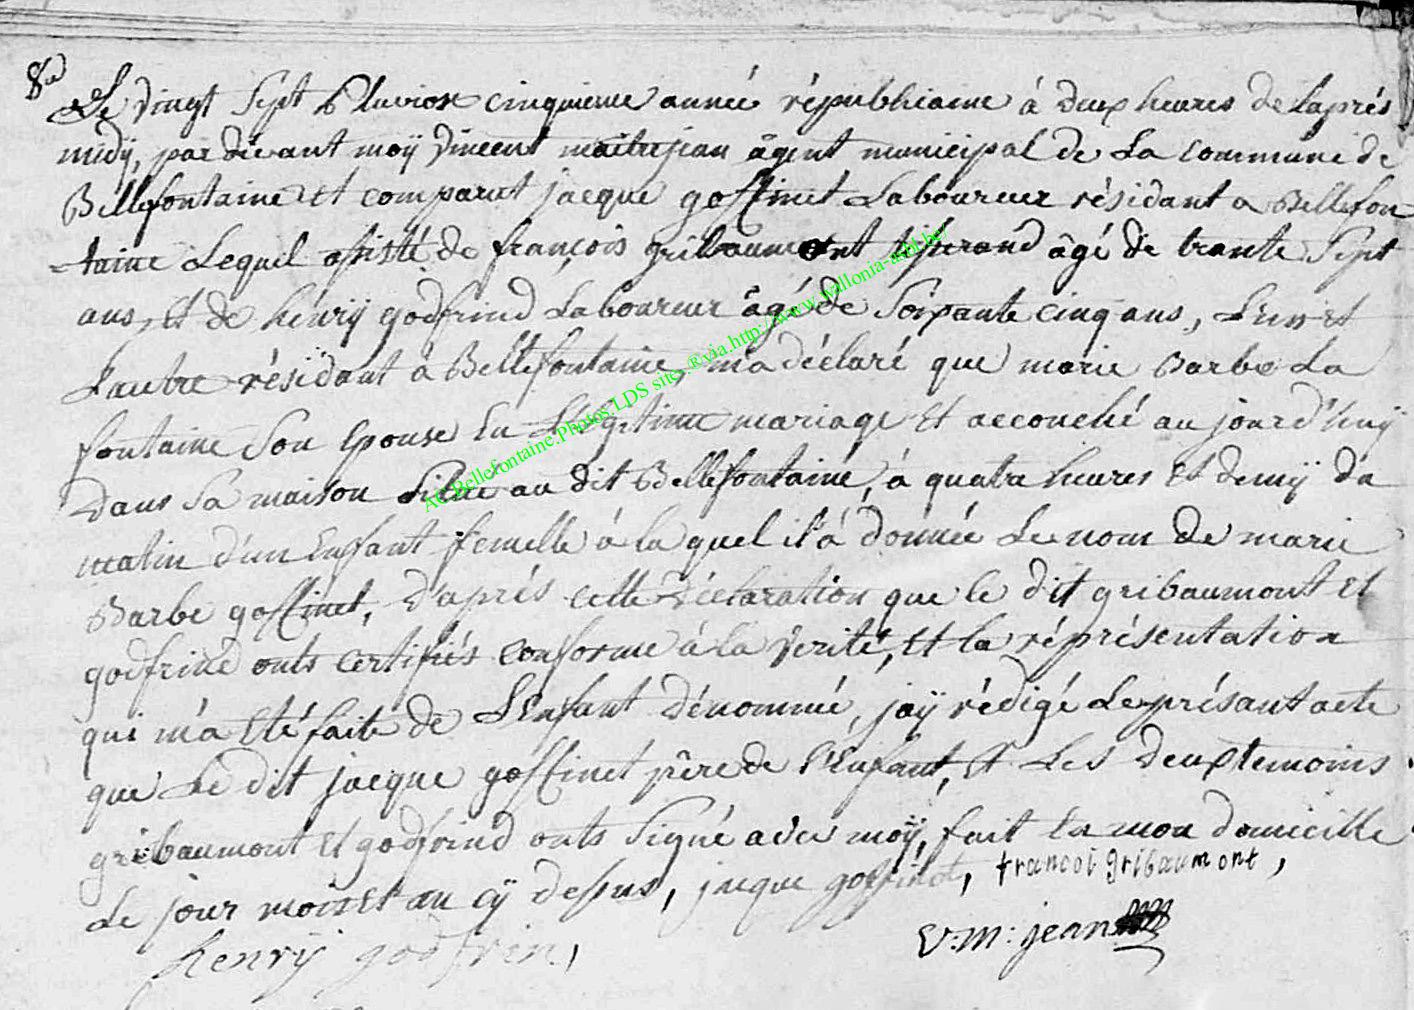 8e
Le vingt Sept Pluviose cinquieme année républicaine à deux heures de Laprés
midÿ, par dévant moÿ Vincent maitrejean âgent municipal de La commune de
Bellefontaine et comparut jacque goffinet Laboureur résidant a Bellefon
-taine Lequel assisté de françois gribaumont âgé de trante Sept
ans, et de henrÿ godfrind Laboureur âgé de Soixante cinq ans, L'un et
L'autre résidant à Bellefontaine, m'a déclaré que marie Barbe La
fontaine Son épouse En Legitime mariage Et accouché au jourd'huÿ
Dans Sa maison Situé au dit Bellefontaine, à quatre heures Et demÿ du
matin d'un Enfant femelle à la quel il à donnée Le nom de marie
Barbe goffinet, D'aprés cette Déclaration que le dit gribaumont Et
godfrind onts certifiés conforme à la vérité, Et la réprésentation
qui m'a Eté faite de L'Enfant Dénommé, jaÿ rédigé Le présant acte
que Le dit jacque goffinet pêre de l'Enfant, Et Les deux temoins
gribaumont Et godfrind onts Signé avec moÿ, fait En mon domicille
Le jour mois Et an cÿ dessus, jacque goffinet, francoi gribaumont,
henrÿ godfrin, V: M: jean
AC.Bellefontaine.Photos.LDS site.®via.http://www.wallonia-asbl.be/